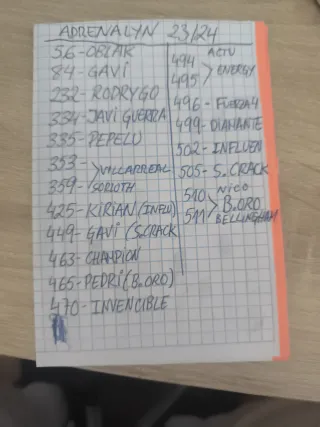 ADRENALYN 23/24
56-OBLAK
84-GAVI
232-RODRYGO
334-JAVI GUERRA
335-PEPELU
353-
>VILLARREAL
359- SORLOTH
425-KIRIAN (INFLU)
449-GAVI (S.CRACK
463-CHAMPION
465-PEDRI (B.ORO)
470-INVENCIBLE
494 ACTU
> ENERGY
495
496-FUERZA 4
499-DIAMANTE
502-INFLUEN
505-S.CRACK
510 NICO
> B.ORO
511 BELLINGHAM